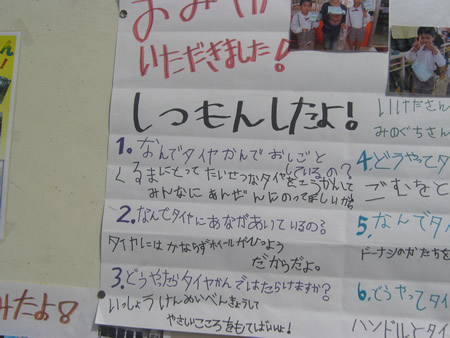 いただきました!
しつもんしたよ!
1. なんでタイヤかんで おしごと
しているの?
くるまにとって たいせつなタイヤをこうかんして
みんなに あんぜんにのってほしいから
2. なんでタイヤにあながあいているの?
タイヤには かならずホイールがひつよう
だからだよ。
3. どうやったらタイヤかんではたらけますか?
いっしょうけんめいべんきょうして
やさいこころをもてばいいよ!
いけださん
みのぐちさん
4. どうやってタ
ごむをと
5. なんでタ
ドーナツのかたちを
6. どうやってタイ
ハンドルとタイ
みたよ